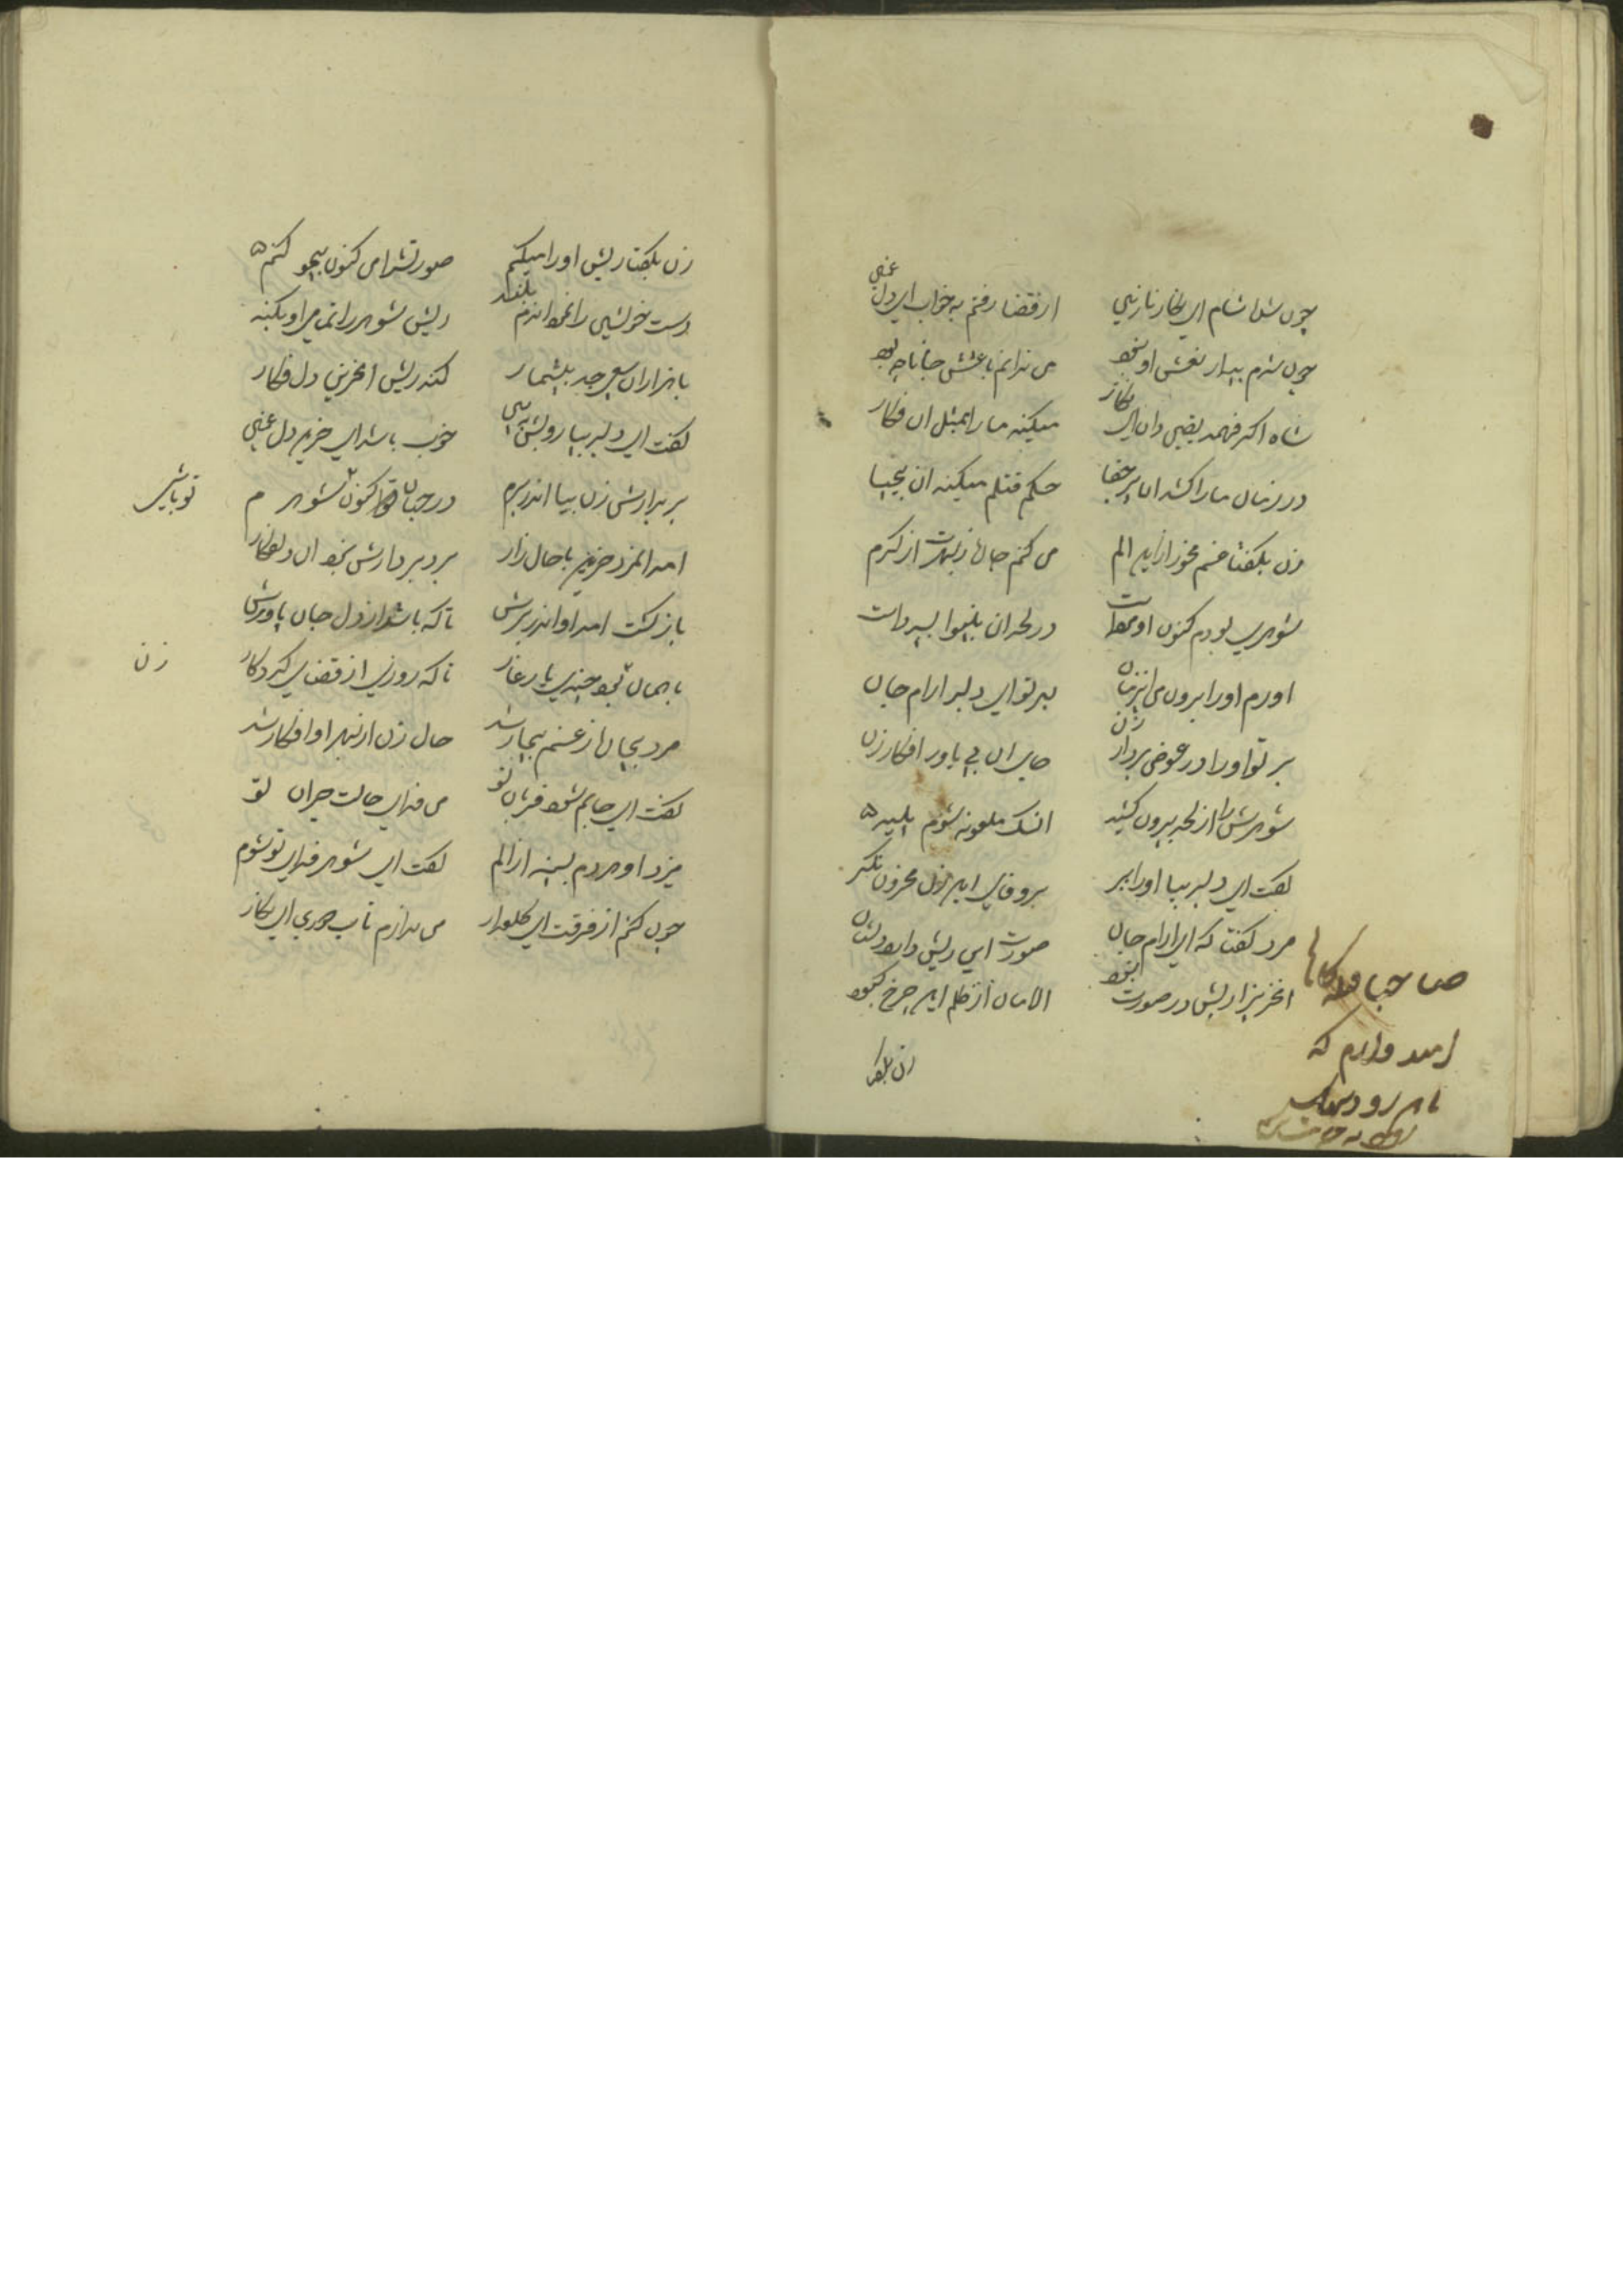 چون شد اشام ای نگار نازنین ارقضا رفتم به خواب ای دل غمین
چون شدم بیدار نعشش او نبود می ندانم باعثش جانا چه بود
شاه اکر فهمد یقین دان ای نکار میکند ما را بمثل ان فکار
در زمان ما را کشد ان پر جفا حکم قتلم میکند ان بیحیا
زن بکفتا غم مخور از این الم می کنم جانا زبهرت از کرم
شوهری بودم کنون او در لحد ان بینوا
اورم او را برون این زمان بر تو ای دلبر ارام جان
بر تو او را در عوض بردار زن جای ان بی یاور افکار زن
شوهرش را از لحد بیرون کشید انسک ملعونه شوم پلید
کفت ای دلبر بیا او را ببر بر وفای این زن محزون نکر
مرد کفتا که ای ارام جان صورت این ریش دارد
انحزین را ریش در صورت نبود الامان از ظلم این چرخ کبود
زن بکفتا
صاحبا
امید وارم که
زن بکفتا ریش او را میکنم صورتش را من کنون بیمو کنم
دست خویشی را نمود اندم بلند ریش شوهر را تمامی او بکند
با هزاران سعی جد بیشمار کند ریش انحزین دل فکار
کفت ای دلبر بیا رویش ببین خوب باشد ای حزین دل غمین
بر بدارش زن بیا اندر برم در جهان کنون شوهرم
تو باشی
امد المرد حزین با حال زار برد بر دارش نمود ان دلفکار
باز کشت امد او اندر برش تا که باشد از دل جان یاورش
با همان بود چندی یار غار تا که روزی از قضای کردکار
زن
مرد بیجان از غم بیمار شد حال زن از بهر او افکار شد
کفت ای جانم شود قربان تو من فدای حالت حیران تو
میزد او هردم بسینه از الم کفت ای شوهر فدای تو شوم
چون کنم از فرقت ای کلعذار می ندارم تاب دوری ای نکار